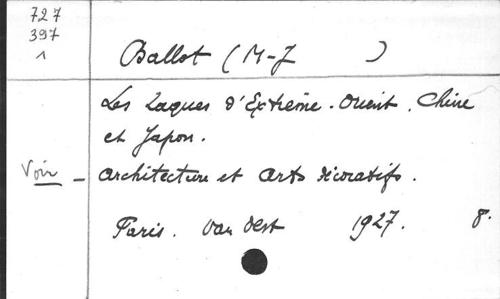 727
397
1
Ballot (M-J )
Les Laques d'Extrême-Orient. Chine
et Japon.
Voir - Architecture et Arts décoratifs.
Paris. Van Oest 1927. 8.